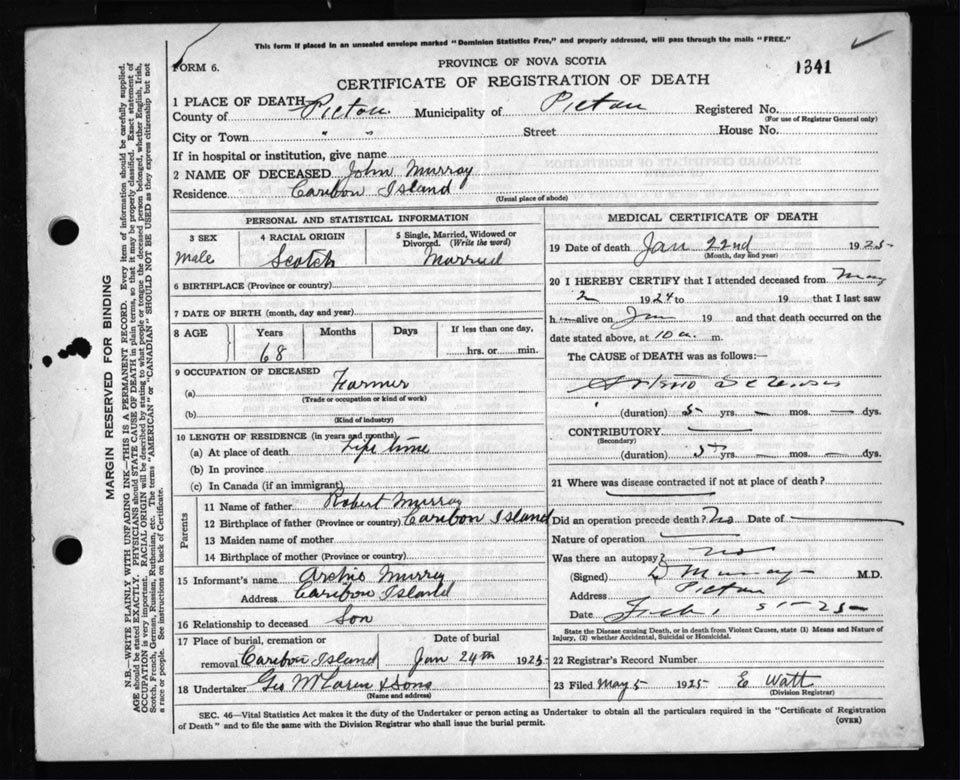 This form if placed in an unsealed envelope marked "Dominion Statistics Free," and properly addressed, will pass through the mails "FREE."
FORM 6.
PROVINCE OF NOVA SCOTIA
1341
CERTIFICATE OF REGISTRATION OF DEATH
1 PLACE OF DEATH
County of Pictou Municipality of Pictou Registered No.
(For use of Registrar General only)
City or Town " " Street House No.
If in hospital or institution, give name
2 NAME OF DECEASED John Murray
Residence Caribou Island
(Usual place of abode)
PERSONAL AND STATISTICAL INFORMATION
3 SEX 4 RACIAL ORIGIN 5 Single, Married, Widowed or Divorced. (Write the word)
Male Scotch Married
6 BIRTHPLACE (Province or country)
7 DATE OF BIRTH (month, day and year)
8 AGE Years Months Days If less than one day,
68 hrs. or min.
9 OCCUPATION OF DECEASED
(a) Farmer
(Trade or occupation or kind of work)
(b)
(Kind of industry)
10 LENGTH OF RESIDENCE (in years and months)
(a) At place of death Life time
(b) In province
(c) In Canada (if an immigrant)
Parents
11 Name of father Robert Murray
12 Birthplace of father (Province or country) Caribou Island
13 Maiden name of mother
14 Birthplace of mother (Province or country)
15 Informant's name Archie Murray
Address Caribou Island
16 Relationship to deceased Son
17 Place of burial, cremation or Date of burial
removal Caribou Island Jan 24th 1925
18 Undertaker Geo McLaren & Sons
(Name and address)
MEDICAL CERTIFICATE OF DEATH
19 Date of death Jan 22nd 1925
(Month, day and year)
20 I HEREBY CERTIFY that I attended deceased from May
2 1924 to 19 that I last saw
h alive on Jan 19 and that death occurred on the
date stated above, at 10 a. m.
The CAUSE of DEATH was as follows:—
Arterio Sclerosis
(duration) 5 yrs. — mos. — dys.
CONTRIBUTORY
(Secondary)
(duration) 5 yrs. — mos. — dys.
21 Where was disease contracted if not at place of death?
Did an operation precede death? No Date of
Nature of operation
Was there an autopsy? no
(Signed) Murray M.D.
Address Pictou
Date
State the Disease causing Death, or in death from Violent Causes, state (1) Means and Nature of
Injury, (2) whether Accidental, Suicidal or Homicidal.
22 Registrar's Record Number
23 Filed May 5 1925 E Watt
(Division Registrar)
SEC. 46—Vital Statistics Act makes it the duty of the Undertaker or person acting as Undertaker to obtain all the particulars required in the "Certificate of Registration
of Death" and to file the same with the Division Registrar who shall issue the burial permit.
(OVER)
MARGIN RESERVED FOR BINDING
N.B.—WRITE PLAINLY WITH UNFADING INK—THIS IS A PERMANENT RECORD. Every item of information should be carefully supplied.
AGE should be stated EXACTLY. PHYSICIANS should STATE CAUSE OF DEATH in plain terms, so that it may be properly classified. Exact statement of
OCCUPATION is very important. RACIAL ORIGIN will be described by stating to what people or tongue the deceased person belonged, whether English, Irish,
Scotch, French, German, Russian, Ruthenian, etc. The terms "AMERICAN" or "CANADIAN" SHOULD NOT BE USED as they express citizenship but not
a race or people. See instructions on back of Certificate.